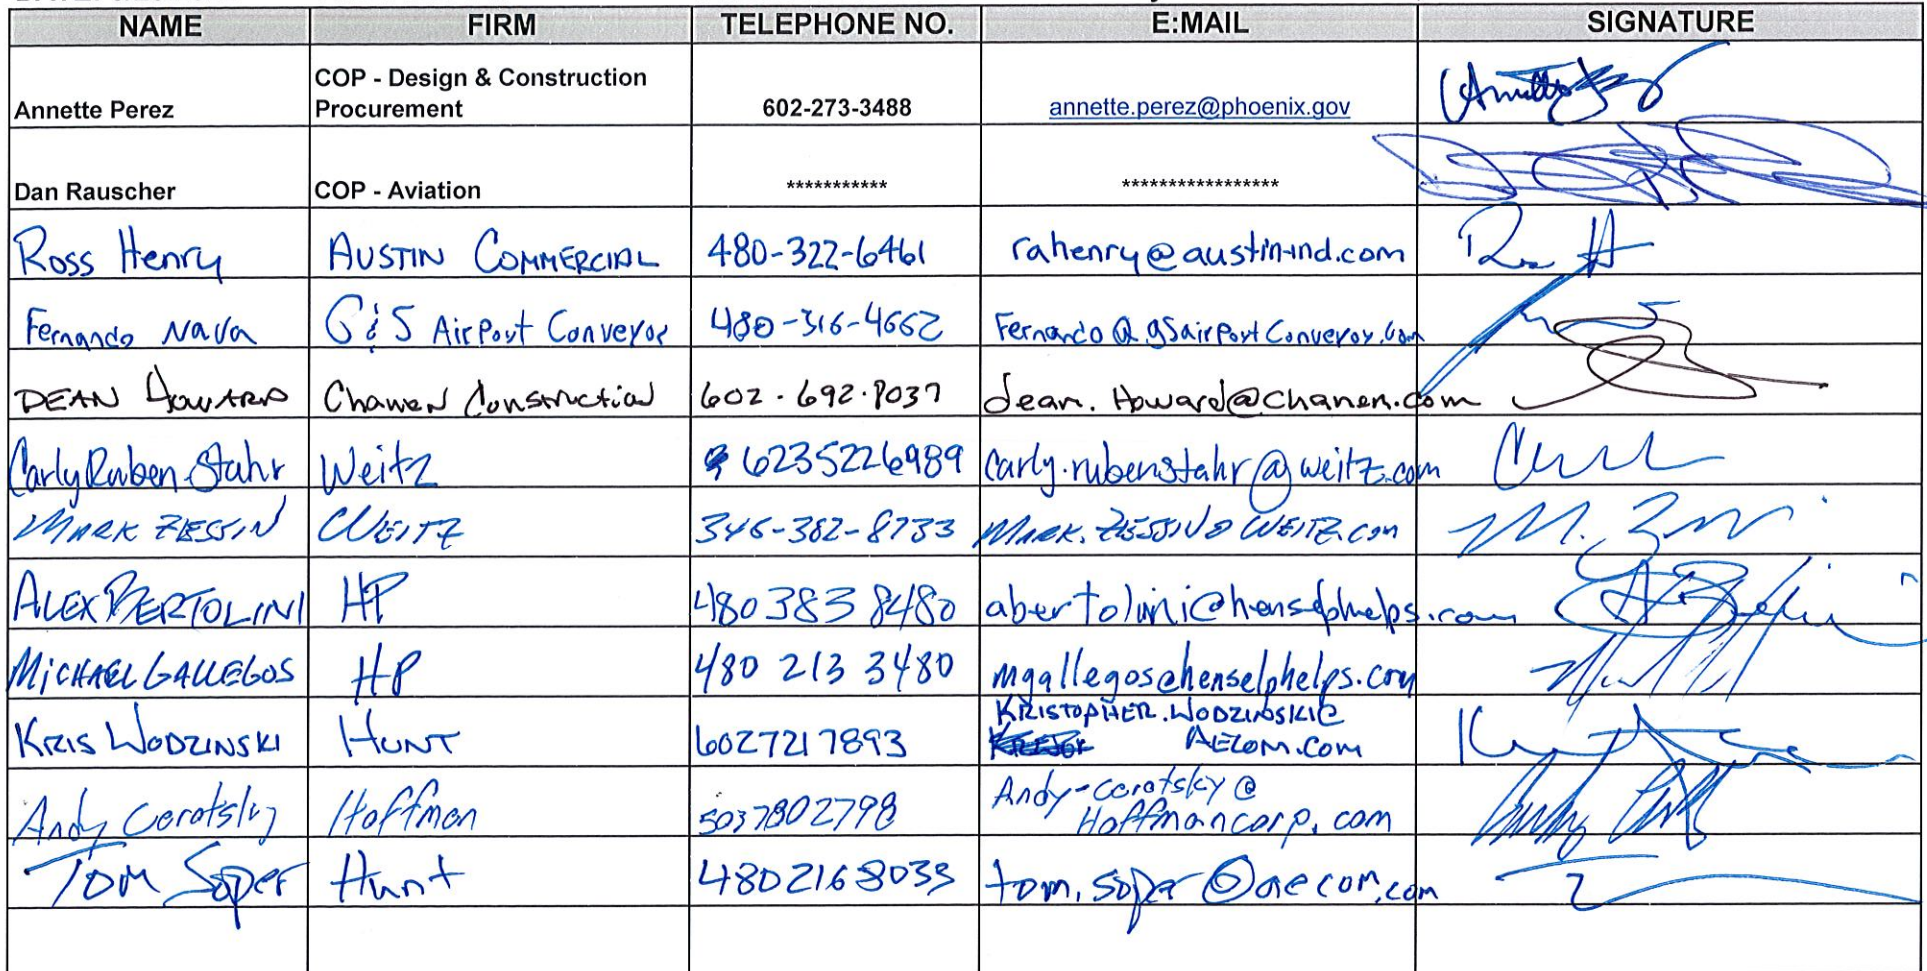 NAME FIRM TELEPHONE NO. E:MAIL SIGNATURE
COP - Design & Construction
Annette Perez Procurement 602-273-3488 annette.perez@phoenix.gov
Dan Rauscher COP - Aviation *********** *****************
Ross Henry AUSTIN COMMERCIAL 480-322-6461 rahenry@austin-ind.com
Fernando Nava G&S AirPort Conveyor 480-316-4662 Fernando@gsairPortConveyor.com
DEAN HOWARD Chanen Construction 602.692.8037 dean.Howard@chanen.com
Carly Ruben Stahr Weitz 6235226989 carly.rubenstahr@weitz.com
MARK ZIESSIN WEITZ 346-382-8733 MARK.ZIESSIN@WEITZ.com
ALEX BERTOLINI HP 480 383 8480 abertolini@henselphelps.com
MICHAEL GALLEGOS HP 480 213 3480 mgallegos@henselphelps.com
KRISTOPHER.WODZINSKI@
KRIS WODZINSKI HUNT 6027217893 AECOM.com
Andy-corotsky@
Andy Corotsky Hoffman 5037802798 Hoffmancorp.com
Tom Soper Hunt 4802168033 tom.soper@aecom.com